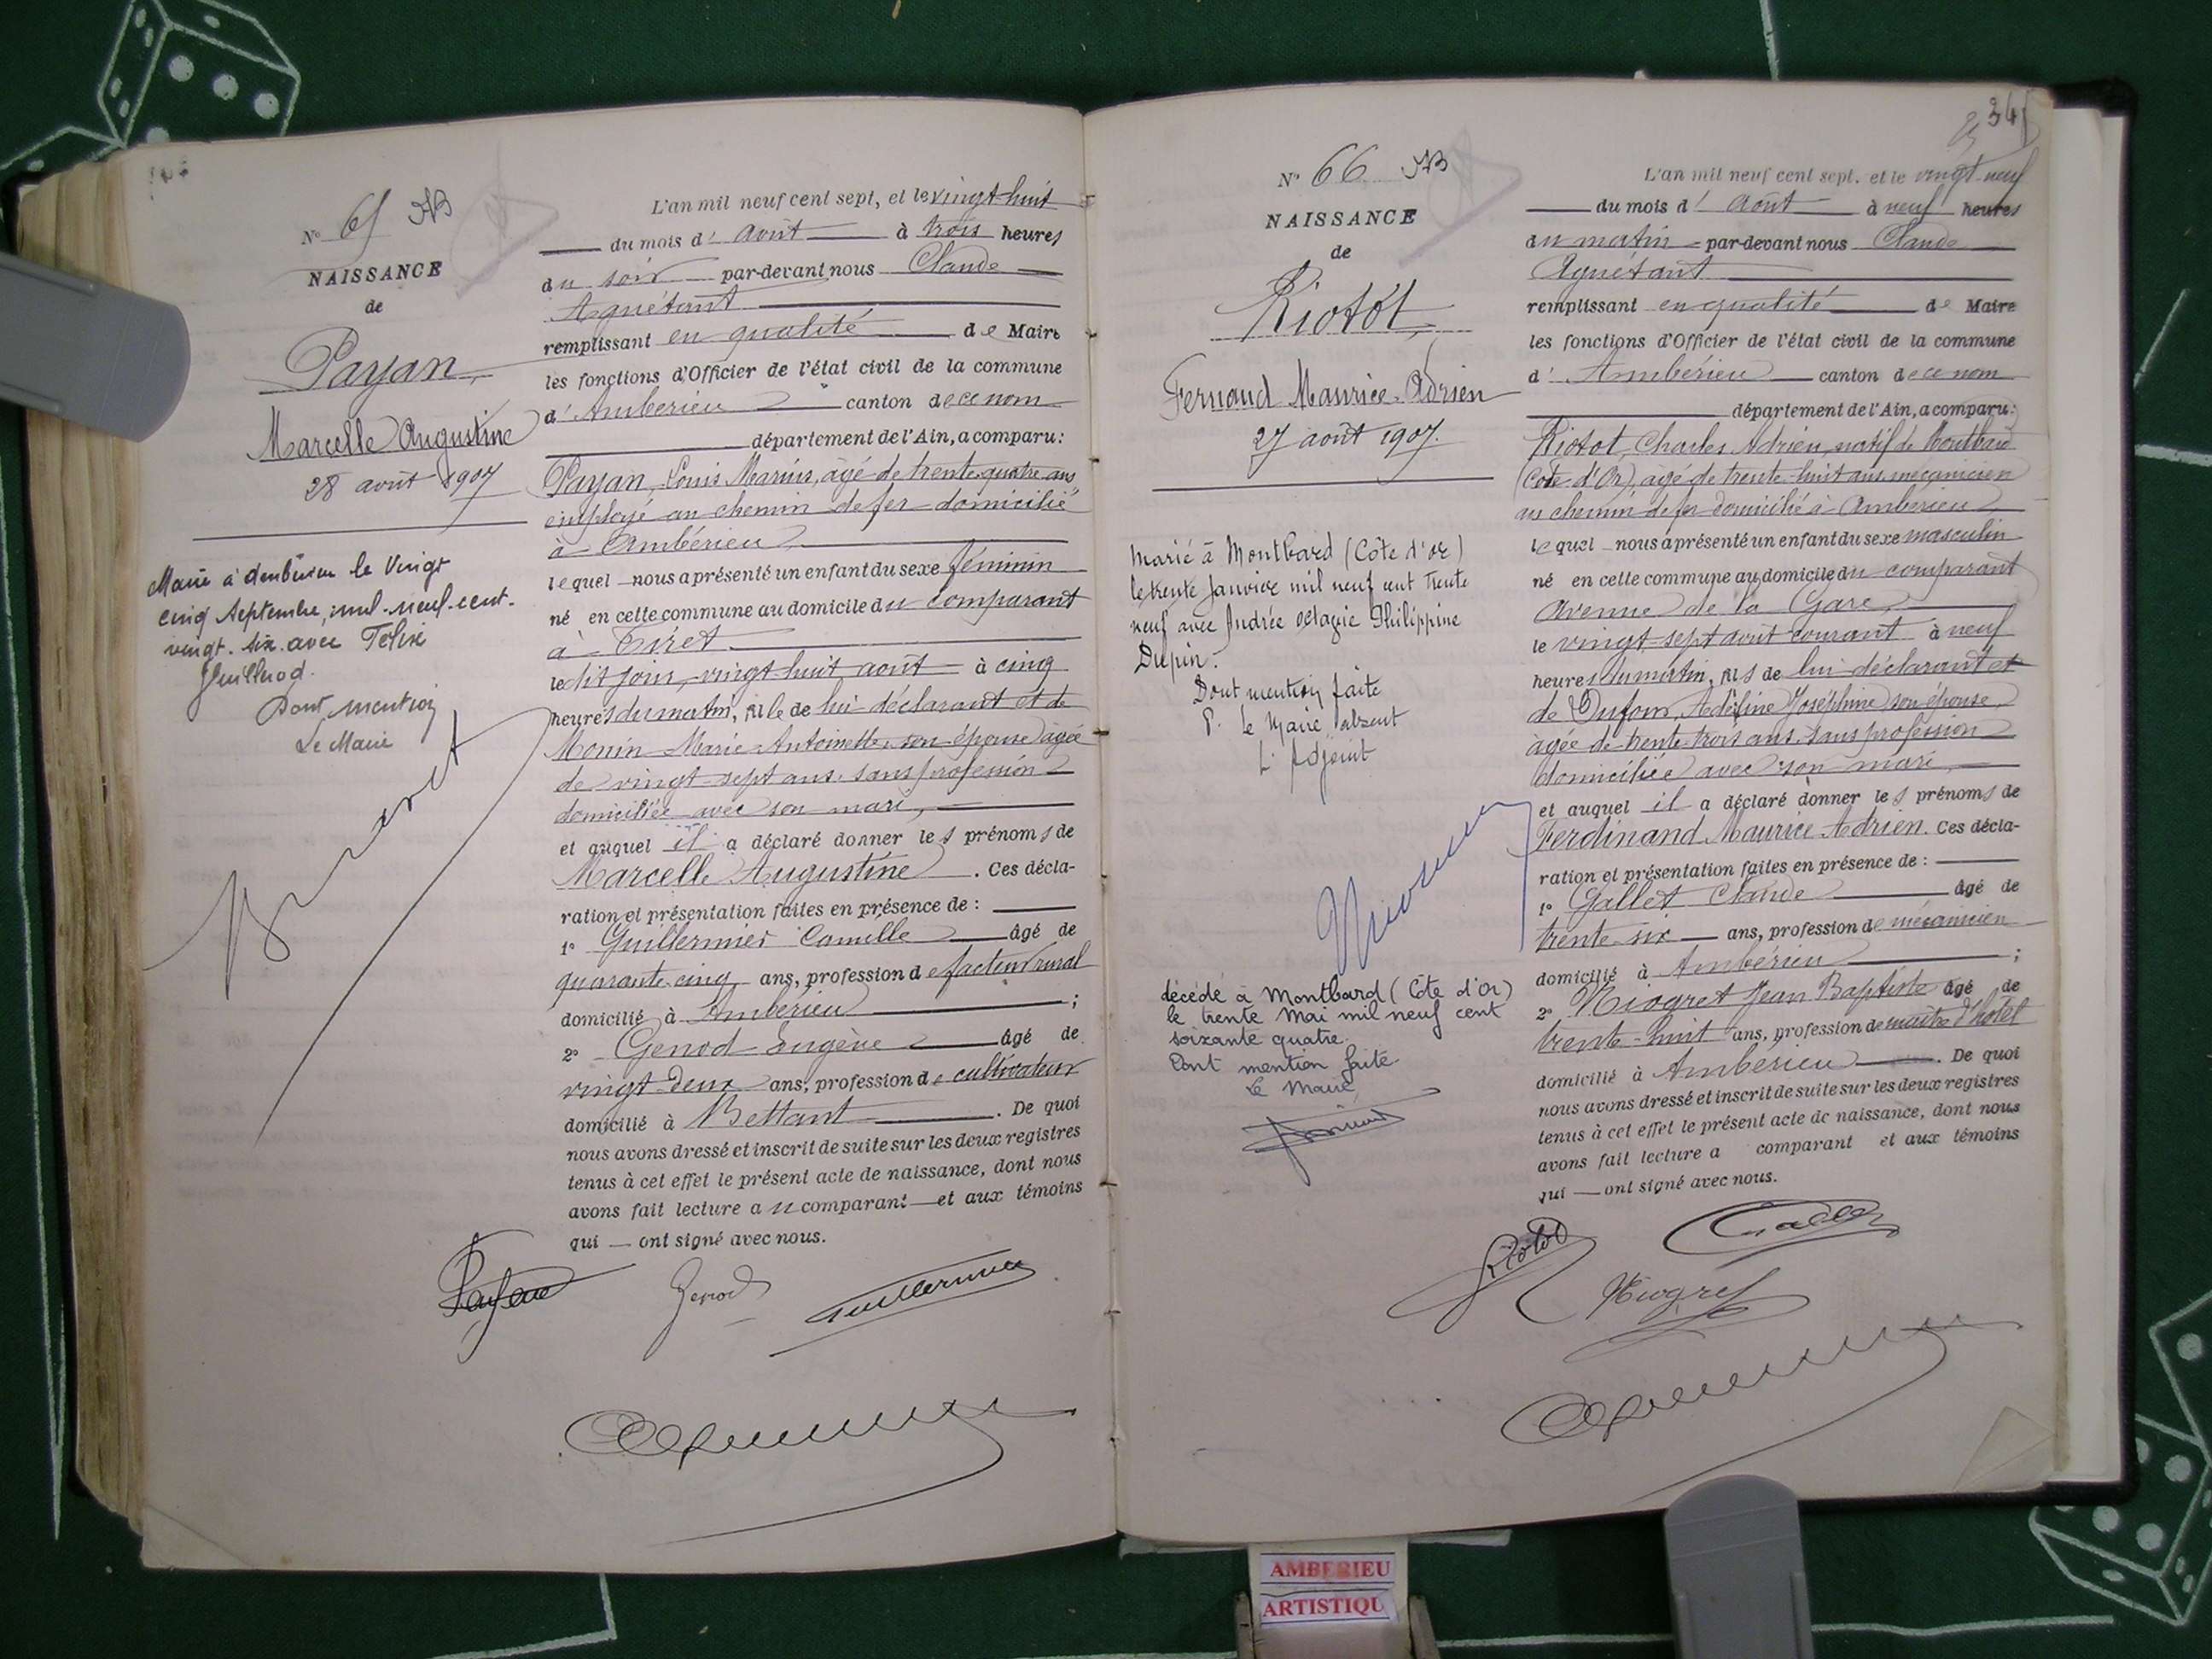 N° 65 AB
NAISSANCE
de
Payan
Marcelle Augustine
28 août 1907
Marié à Ambérieu le vingt
cinq Septembre, mil-neuf-cent-
vingt-six avec Felix
Guillod.
Dont mention
Le Maire
L'an mil neuf cent sept, et le vingt-huit
du mois d' août à trois heures
du soir par-devant nous Claude
Aguétant
remplissant en qualité de Maire
les fonctions d'Officier de l'état civil de la commune
d' Amberieu canton de ce nom
département de l'Ain, a comparu:
Payan, Louis Marius, âgé de trente-quatre ans
employé au chemin de fer domicilié
à Ambérieu
lequel nous a présenté un enfant du sexe féminin
né en cette commune au domicile du comparant
à Tiret
le dit jour, vingt-huit août à cinq
heures du matin, fille de lui déclarant et de
Monin Marie Antoinette, son épouse âgée
de vingt-sept ans, sans profession
domiciliée avec son mari,
et auquel il a déclaré donner les prénoms de
Marcelle Augustine. Ces décla-
ration et présentation faites en présence de :
1° Guillermier Camille âgé de
quarante-cinq ans, profession de facteur rural
domicilié à Ambérieu ;
2° Genod Eugène âgé de
vingt-deux ans, profession de cultivateur
domicilié à Bettant. De quoi
nous avons dressé et inscrit de suite sur les deux registres
tenus à cet effet le présent acte de naissance, dont nous
avons fait lecture au comparant et aux témoins
qui ont signé avec nous.
Payan Genod Guillermier
345
N° 66 AB
NAISSANCE
de
Riotot
Fernand Maurice-Adrien
27 août 1907.
Marié à Montbard (Côte d'or)
le trente Janvier mil neuf cent trente
neuf avec Andrée Octavie Philippine
Dupin.
Dont mention faite
P. le Maire absent
L'Adjoint
décédé à Montbard (Côte d'Or)
le trente Mai mil neuf cent
soixante quatre.
Dont mention faite
Le Maire
L'an mil neuf cent sept, et le vingt-neuf
du mois d' août à neuf heures
du matin par-devant nous Claude
Aguétant
remplissant en qualité de Maire
les fonctions d'Officier de l'état civil de la commune
d' Ambérieu canton de ce nom
département de l'Ain, a comparu:
Riotot, Charles Adrien, natif de Montbard
(Côte-d'Or), âgé de trente-huit ans, mécanicien
au chemin de fer domicilié à Ambérieu
lequel nous a présenté un enfant du sexe masculin
né en cette commune au domicile du comparant
Avenue de la Gare,
le vingt-sept août courant à neuf
heures du matin, fils de lui déclarant et
de Dufour, Adeline Joséphine son épouse,
âgée de trente-trois ans, sans profession
domiciliée avec son mari,
et auquel il a déclaré donner les prénoms de
Ferdinand Maurice Adrien. Ces décla-
ration et présentation faites en présence de :
1° Gallet Claude âgé de
trente-six ans, profession de mécanicien
domicilié à Ambérieu ;
2° Niogret Jean Baptiste âgé de
trente-huit ans, profession de maître d'hôtel
domicilié à Amberieu. De quoi
nous avons dressé et inscrit de suite sur les deux registres
tenus à cet effet le présent acte de naissance, dont nous
avons fait lecture a comparant et aux témoins
qui ont signé avec nous.
Riotot Gallet
Niogret
AMBERIEU
ARTISTIQU